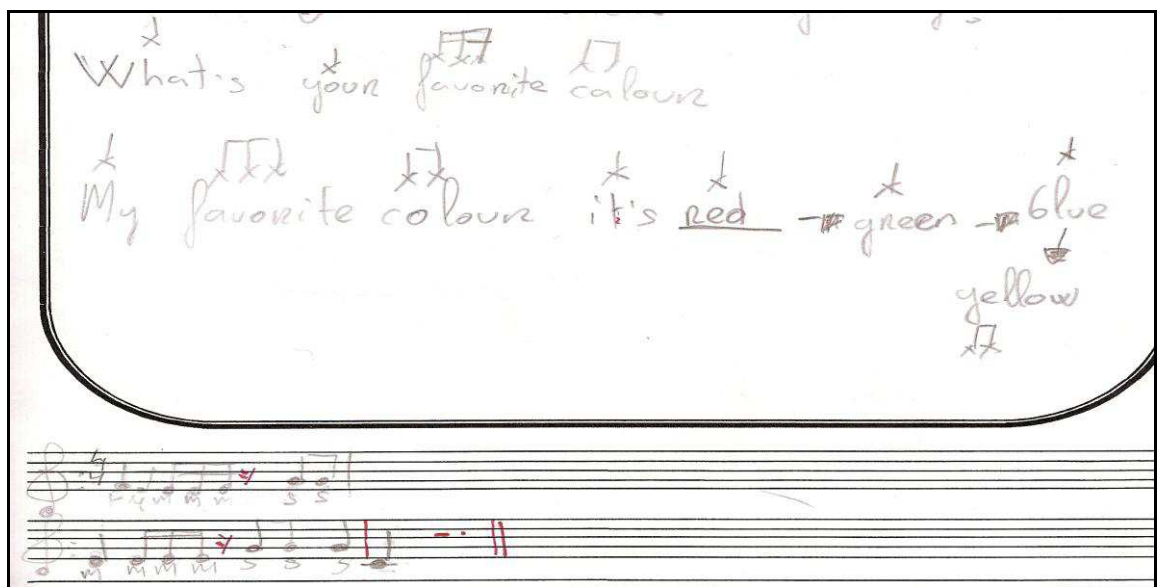 What's your favorite colour
My favorite colour it's red → green → blue
yellow
4
4
m m m s s
m m m m s s s